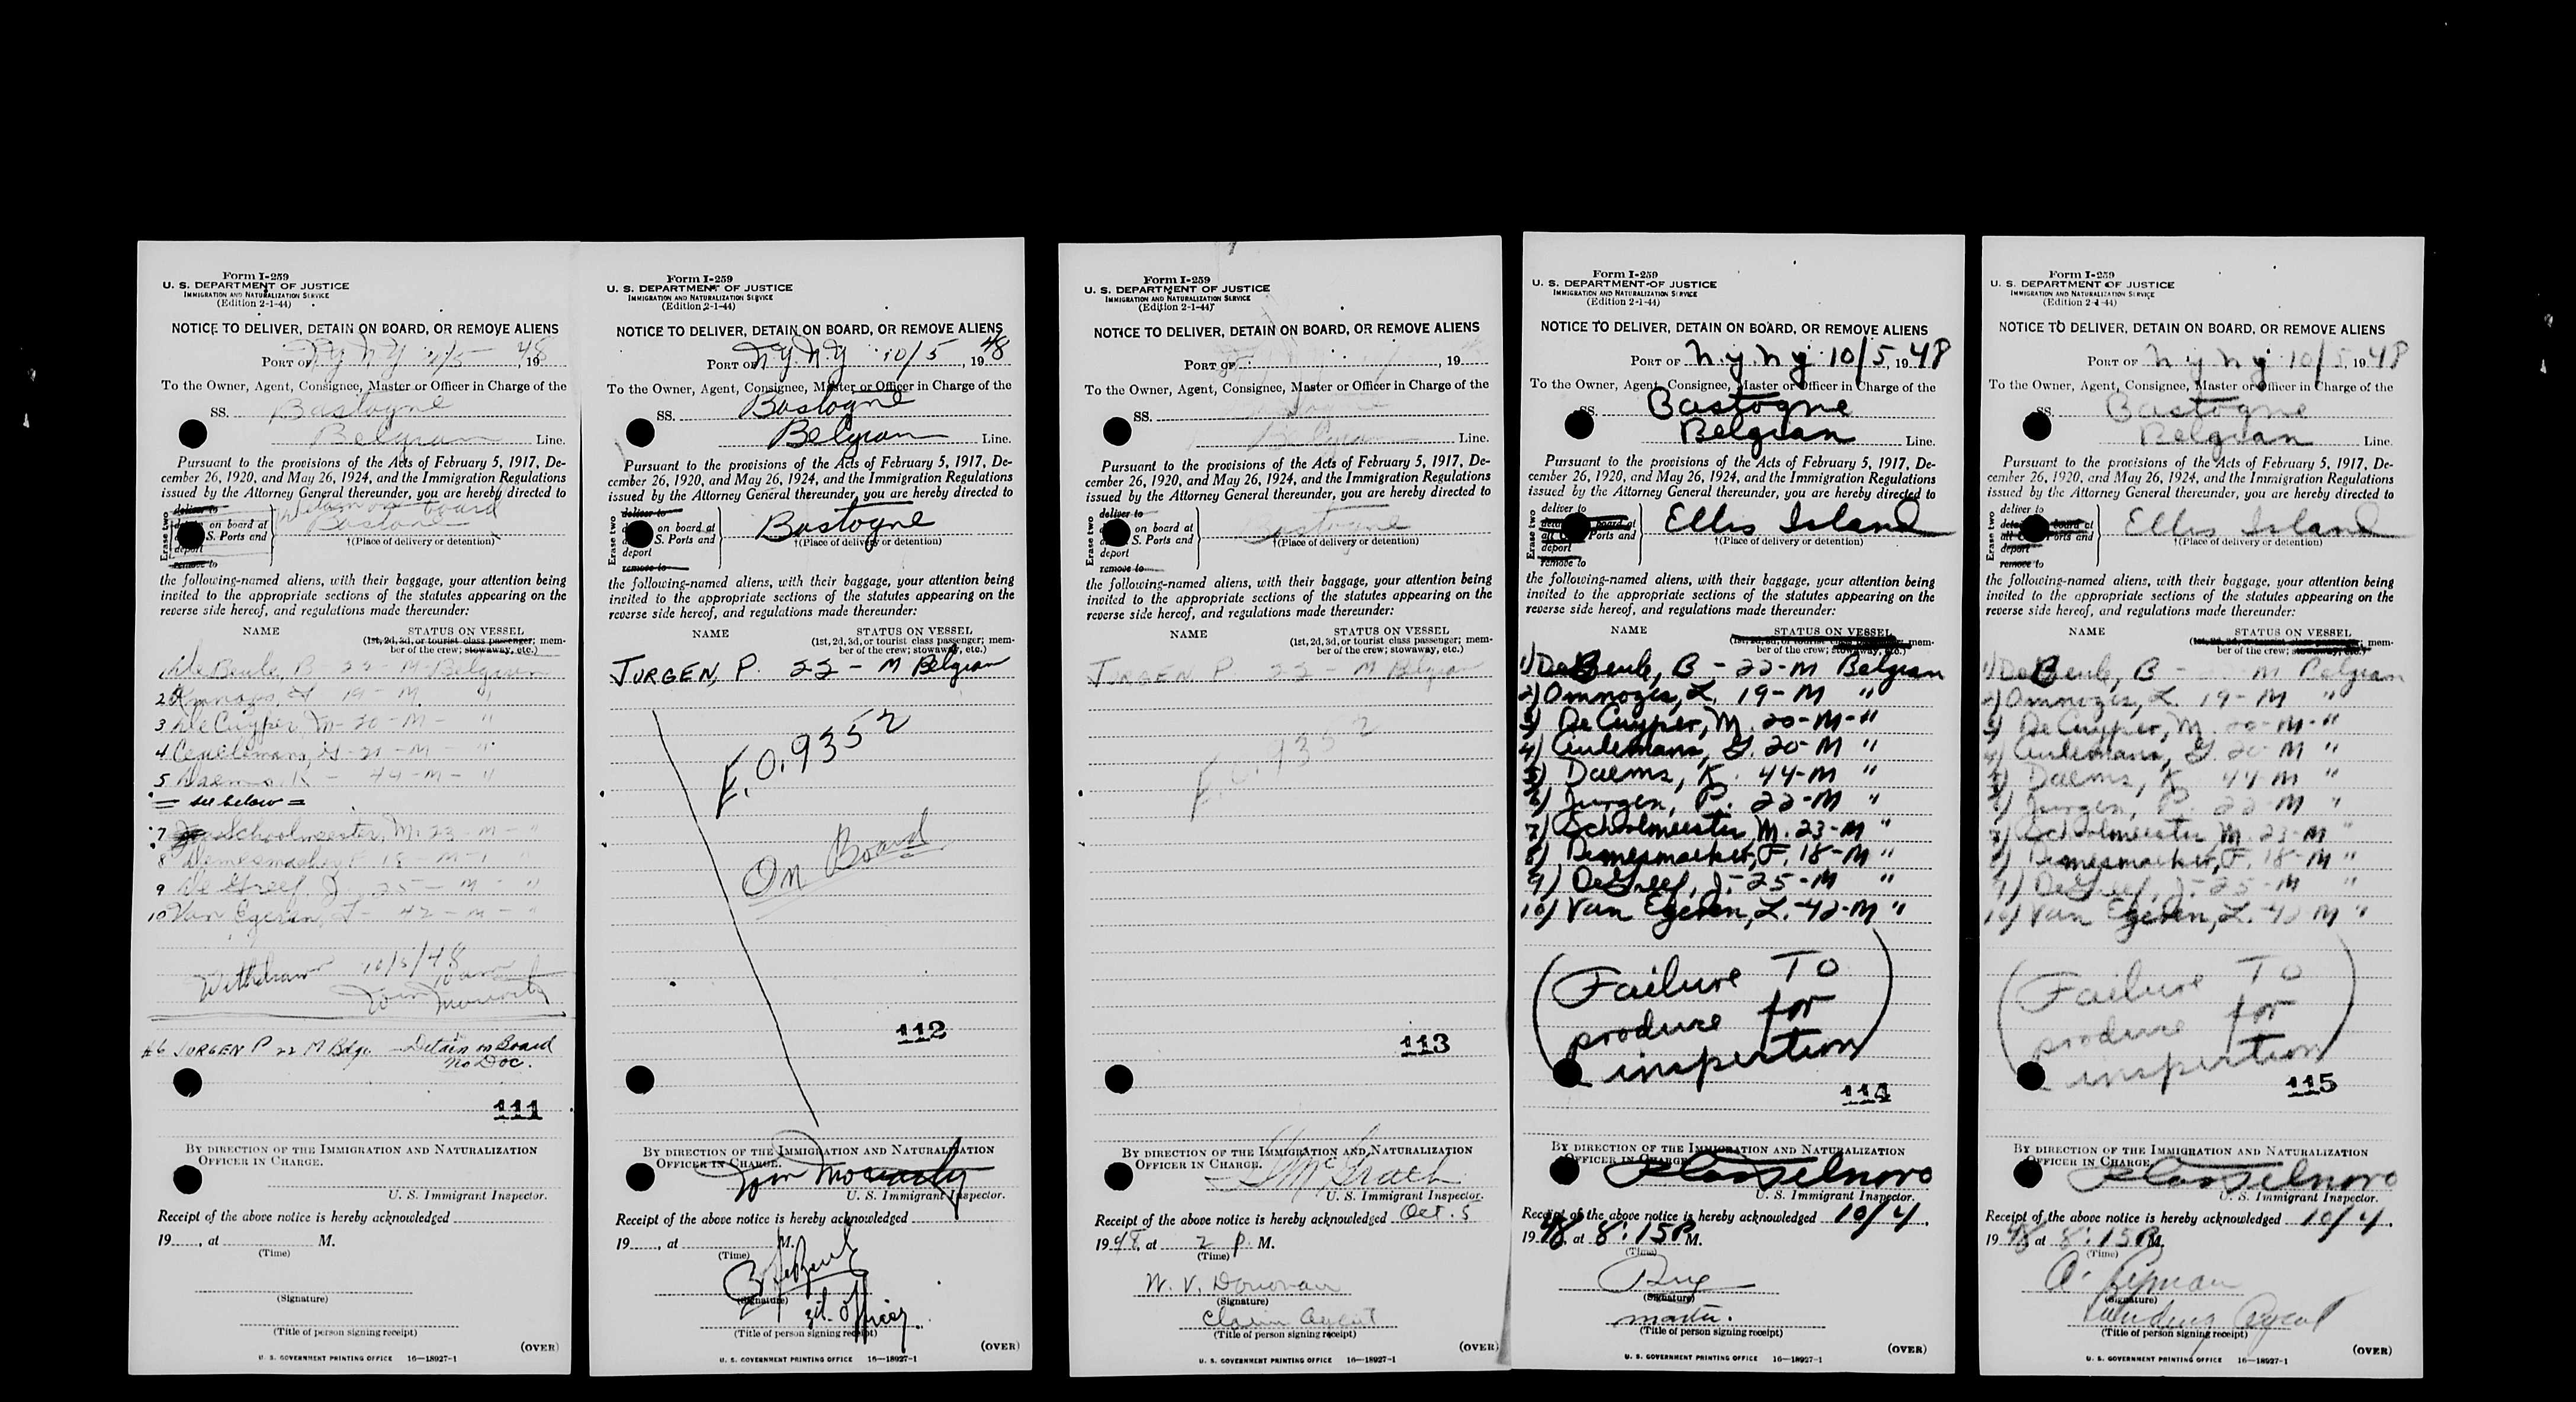 Form I-259
U. S. DEPARTMENT OF JUSTICE
IMMIGRATION AND NATURALIZATION SERVICE
(Edition 2-1-44)
NOTICE TO DELIVER, DETAIN ON BOARD, OR REMOVE ALIENS
PORT OF N.Y. N.Y. 10/5, 1948
To the Owner, Agent, Consignee, Master or Officer in Charge of the
SS. Bastogne
Belgian Line.
Pursuant to the provisions of the Acts of February 5, 1917, De-
cember 26, 1920, and May 26, 1924, and the Immigration Regulations
issued by the Attorney General thereunder, you are hereby directed to
Erase two
deliver to
on board at
S. Ports and
deport
remove to
Detain on board
†(Place of delivery or detention)
the following-named aliens, with their baggage, your attention being
invited to the appropriate sections of the statutes appearing on the
reverse side hereof, and regulations made thereunder:
NAME STATUS ON VESSEL
(1st, 2d, 3d, or tourist class passenger; mem-
ber of the crew; stowaway, etc.)
1 De Beule, B - 22 - M - Belgian
2 19 - M "
3 De Cuyper, M - 20 - M - "
4 M - "
5 Daems, K - 44 - M - "
= see below =
7 Schoolmeester, M. 23 - M - "
8 Demesmaeker, F 18 - M - "
9 De Greef, J 25 - M - "
10 Van Egeren, L - 42 - M - "
Withdrawn 10/5/48
#6 JURGEN P 22 M Belge. - Detain on Board
No Doc.
111
BY DIRECTION OF THE IMMIGRATION AND NATURALIZATION
OFFICER IN CHARGE.
U. S. Immigrant Inspector.
Receipt of the above notice is hereby acknowledged
19, at M.
(Time)
(Signature)
(Title of person signing receipt)
(OVER)
U. S. GOVERNMENT PRINTING OFFICE 16—18927-1
Form I-259
U. S. DEPARTMENT OF JUSTICE
IMMIGRATION AND NATURALIZATION SERVICE
(Edition 2-1-44)
NOTICE TO DELIVER, DETAIN ON BOARD, OR REMOVE ALIENS
PORT OF N.Y. N.Y 10/5, 1948
To the Owner, Agent, Consignee, Master or Officer in Charge of the
SS. Bastogne
Belgian Line.
Pursuant to the provisions of the Acts of February 5, 1917, De-
cember 26, 1920, and May 26, 1924, and the Immigration Regulations
issued by the Attorney General thereunder, you are hereby directed to
Erase two
deliver to
on board at
S. Ports and
deport
remove to
Bastogne
†(Place of delivery or detention)
the following-named aliens, with their baggage, your attention being
invited to the appropriate sections of the statutes appearing on the
reverse side hereof, and regulations made thereunder:
NAME STATUS ON VESSEL
(1st, 2d, 3d, or tourist class passenger; mem-
ber of the crew; stowaway, etc.)
JURGEN, P. 22 - M Belgian
E.O. 9352
On Board
112
BY DIRECTION OF THE IMMIGRATION AND NATURALIZATION
OFFICER IN CHARGE.
U. S. Immigrant Inspector.
Receipt of the above notice is hereby acknowledged
19, at M.
(Time)
(Signature)
Officer
(Title of person signing receipt)
(OVER)
U. S. GOVERNMENT PRINTING OFFICE 16—18927-1
Form I-259
U. S. DEPARTMENT OF JUSTICE
IMMIGRATION AND NATURALIZATION SERVICE
(Edition 2-1-44)
NOTICE TO DELIVER, DETAIN ON BOARD, OR REMOVE ALIENS
PORT OF , 19
To the Owner, Agent, Consignee, Master or Officer in Charge of the
SS.
Belgian Line.
Pursuant to the provisions of the Acts of February 5, 1917, De-
cember 26, 1920, and May 26, 1924, and the Immigration Regulations
issued by the Attorney General thereunder, you are hereby directed to
Erase two
deliver to
on board at
S. Ports and
deport
remove to
Bastogne
†(Place of delivery or detention)
the following-named aliens, with their baggage, your attention being
invited to the appropriate sections of the statutes appearing on the
reverse side hereof, and regulations made thereunder:
NAME STATUS ON VESSEL
(1st, 2d, 3d, or tourist class passenger; mem-
ber of the crew; stowaway, etc.)
JURGEN P. 22 - M Belgian
E.O. 9352
113
BY DIRECTION OF THE IMMIGRATION AND NATURALIZATION
OFFICER IN CHARGE.
McGrath
U. S. Immigrant Inspector.
Receipt of the above notice is hereby acknowledged Oct. 5
1948, at 2 P. M.
(Time)
W. V. Donovan
(Signature)
Claim Agent
(Title of person signing receipt)
(OVER)
U. S. GOVERNMENT PRINTING OFFICE 16—18927-1
Form I-259
U. S. DEPARTMENT OF JUSTICE
IMMIGRATION AND NATURALIZATION SERVICE
(Edition 2-1-44)
NOTICE TO DELIVER, DETAIN ON BOARD, OR REMOVE ALIENS
PORT OF N.Y. N.Y. 10/5, 1948
To the Owner, Agent, Consignee, Master or Officer in Charge of the
SS. Bastogne
Belgian Line.
Pursuant to the provisions of the Acts of February 5, 1917, De-
cember 26, 1920, and May 26, 1924, and the Immigration Regulations
issued by the Attorney General thereunder, you are hereby directed to
Erase two
deliver to
board at
Ports and
deport
remove to
Ellis Island
†(Place of delivery or detention)
the following-named aliens, with their baggage, your attention being
invited to the appropriate sections of the statutes appearing on the
reverse side hereof, and regulations made thereunder:
NAME STATUS ON VESSEL
mem-
ber of the crew; stowaway, etc.)
1) De Beule, B - 22 - M Belgian
2) Omnozes, L. 19 - M "
3) De Cuyper, M. 20 - M - "
4) Ceulemans, G. 20 - M "
5) Daems, K. 44 - M "
6) Jurgen, P. 22 - M "
7) Schoolmeester M. 23 - M "
8) Demesmaeker, F. 18 - M "
9) De Greef, J. - 25 - M "
10) Van Egeren, L. - 42 - M "
(Failure To
produce for
inspection)
114
BY DIRECTION OF THE IMMIGRATION AND NATURALIZATION
OFFICER IN CHARGE.
U. S. Immigrant Inspector.
Receipt of the above notice is hereby acknowledged 10/4.
1948, at 8:15 P M.
(Time)
(Signature)
master.
(Title of person signing receipt)
(OVER)
U. S. GOVERNMENT PRINTING OFFICE 16—18927-1
Form I-259
U. S. DEPARTMENT OF JUSTICE
IMMIGRATION AND NATURALIZATION SERVICE
(Edition 2-1-44)
NOTICE TO DELIVER, DETAIN ON BOARD, OR REMOVE ALIENS
PORT OF N.Y. N.Y. 10/5, 1948
To the Owner, Agent, Consignee, Master or Officer in Charge of the
SS. Bastogne
Belgian Line.
Pursuant to the provisions of the Acts of February 5, 1917, De-
cember 26, 1920, and May 26, 1924, and the Immigration Regulations
issued by the Attorney General thereunder, you are hereby directed to
Erase two
deliver to
board at
Ports and
deport
remove to
Ellis Island
†(Place of delivery or detention)
the following-named aliens, with their baggage, your attention being
invited to the appropriate sections of the statutes appearing on the
reverse side hereof, and regulations made thereunder:
NAME STATUS ON VESSEL
(1st, 2d, 3d, or tourist class passenger; mem-
ber of the crew; stowaway, etc.)
1) De Beule, B - M Belgian
2) Omnozes, L. 19 - M "
3) De Cuyper, M. 20 - M - "
4) Ceulemans, G. 20 - M "
5) Daems, K 44 - M "
6) Jurgen, P. 22 - M "
7) Schoolmeester M. 23 - M "
8) Demesmaeker, F. 18 - M "
9) De Greef, J. - 25 - M "
10) Van Egeren, L. - 42 M "
(Failure To
produce for
inspection)
115
BY DIRECTION OF THE IMMIGRATION AND NATURALIZATION
OFFICER IN CHARGE.
U. S. Immigrant Inspector.
Receipt of the above notice is hereby acknowledged 10/4.
1948 at 8:15 P M.
(Time)
(Signature)
Agent
(Title of person signing receipt)
(OVER)
U. S. GOVERNMENT PRINTING OFFICE 16—18927-1